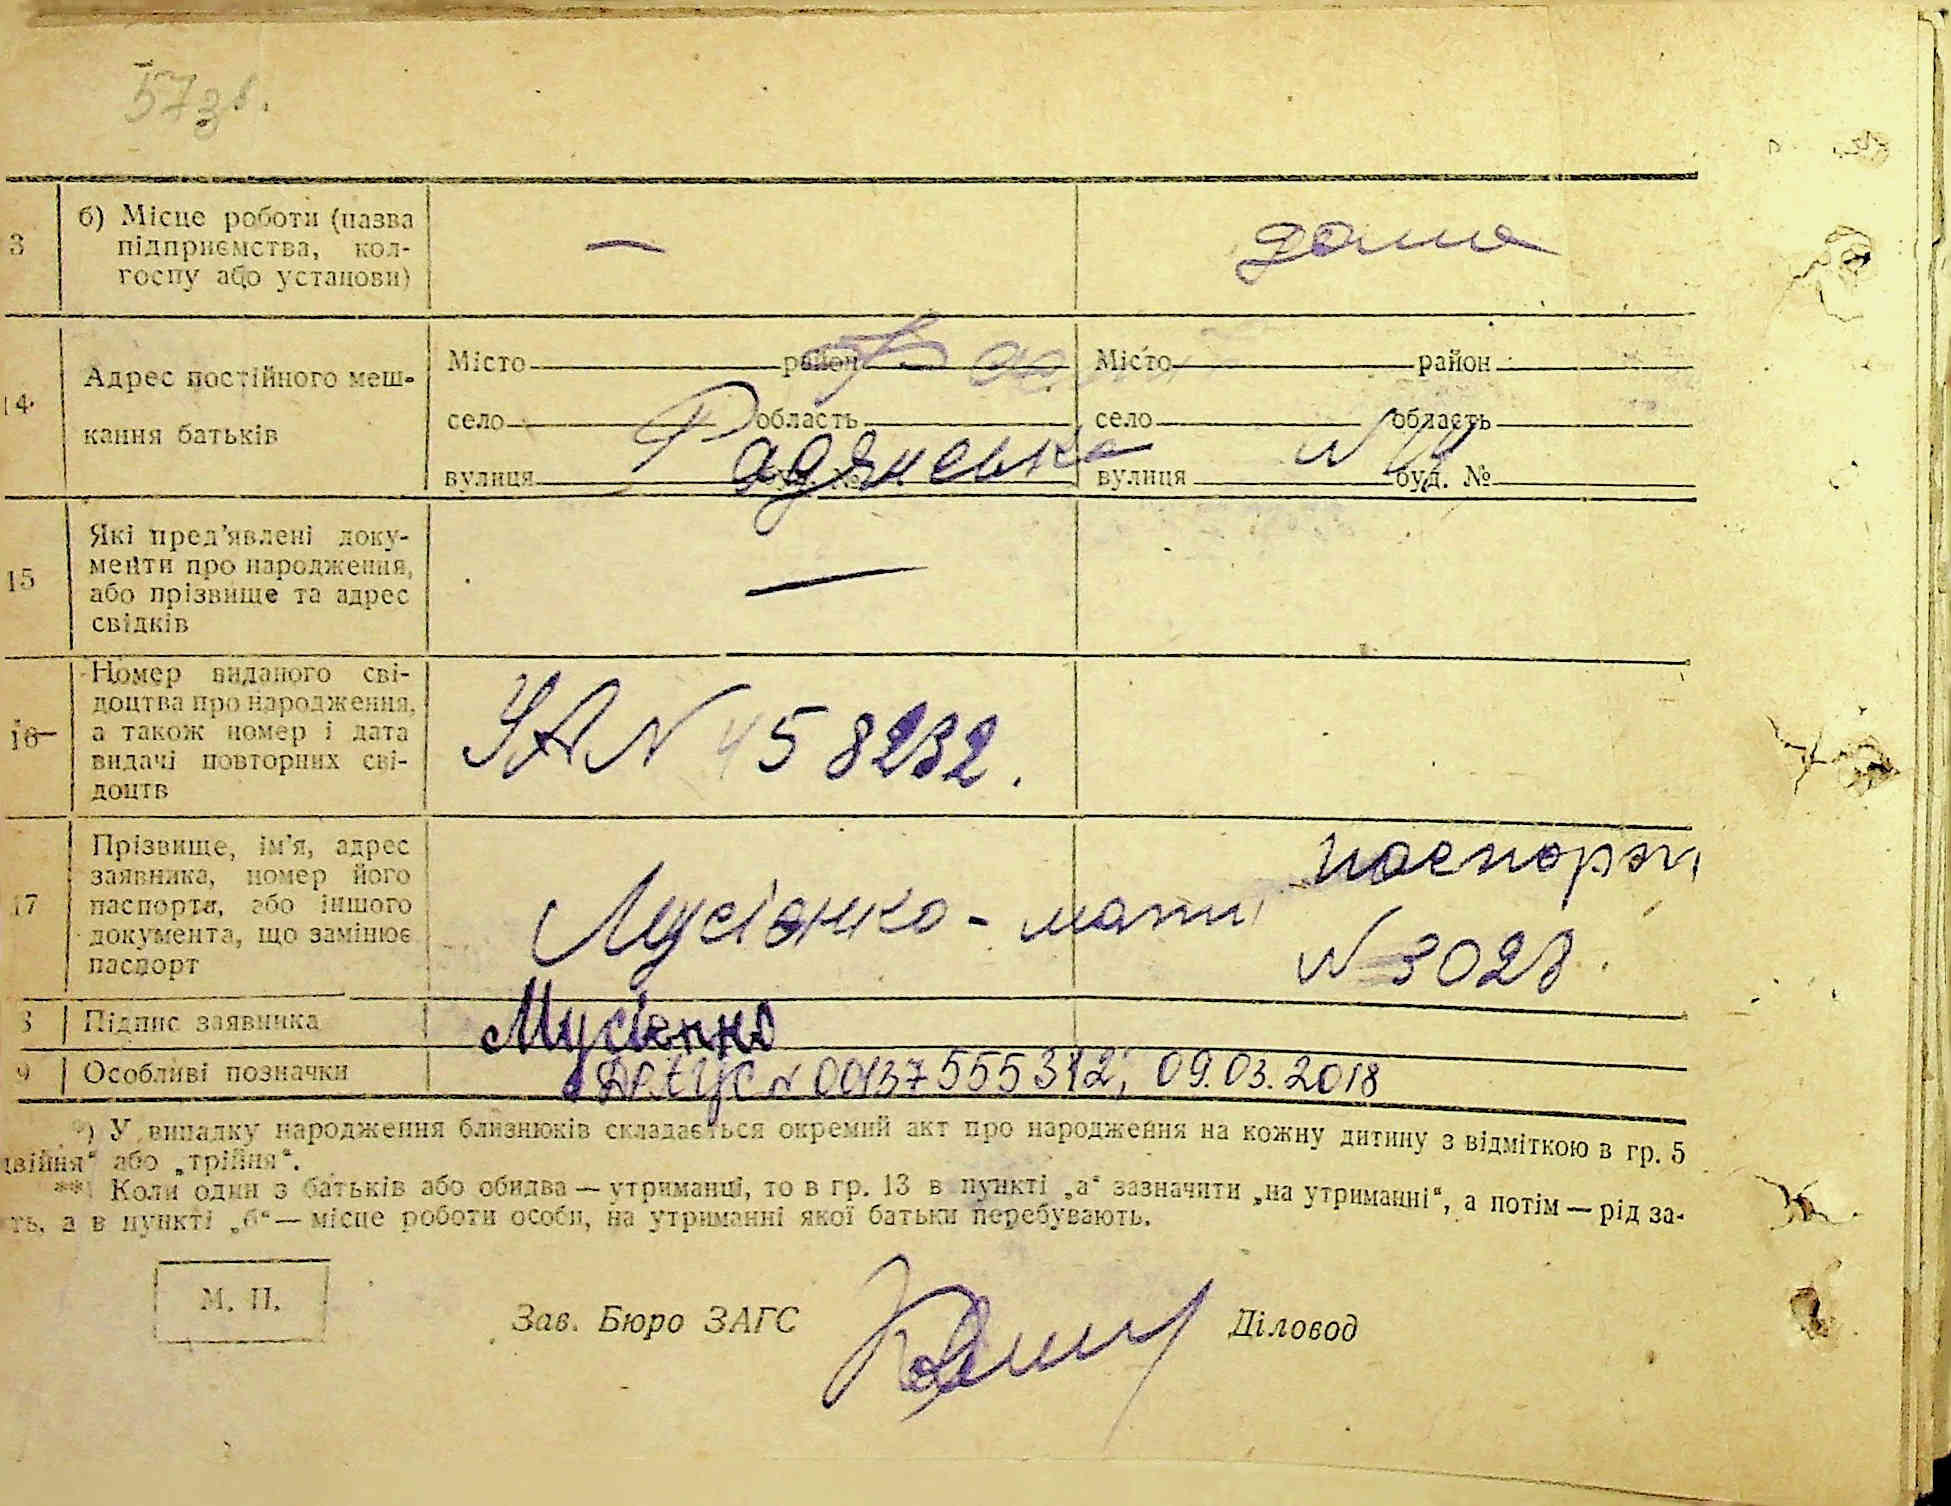 57зв.
3 б) Місце роботи (назва
підприємства, кол-
госпу або установи) — дома
14 Адрес постійного меш-
кання батьків
Місто район Місто район
село область село область
вулиця Радянська буд. № вулиця N 14 буд. №
15 Які пред'явлені доку-
менти про народження,
або прізвище та адрес
свідків —
16 Номер виданого сві-
доцтва про народження,
а також номер і дата
видачі повторних сві-
доцтв
УА N 458232.
17 Прізвище, ім'я, адрес
заявника, номер його
паспорта, або іншого
документа, що замінює
паспорт
Мусієнко - мати, паспорт,
N 3028.
8 Підпис заявника Мусієнко
9 Особливі позначки ДРАЦС N 00137555312, 09.03.2018
*) У випадку народження близнюків складається окремий акт про народження на кожну дитину з відміткою в гр. 5
двійня“ або „трійня“.
**) Коли один з батьків або обидва — утриманці, то в гр. 13 в пункті „а“ зазначити „на утриманні“, а потім — рід за-
ть, а в пункті „б“ — місце роботи особи, на утриманні якої батьки перебувають.
М. П.
Зав. Бюро ЗАГС Діловод